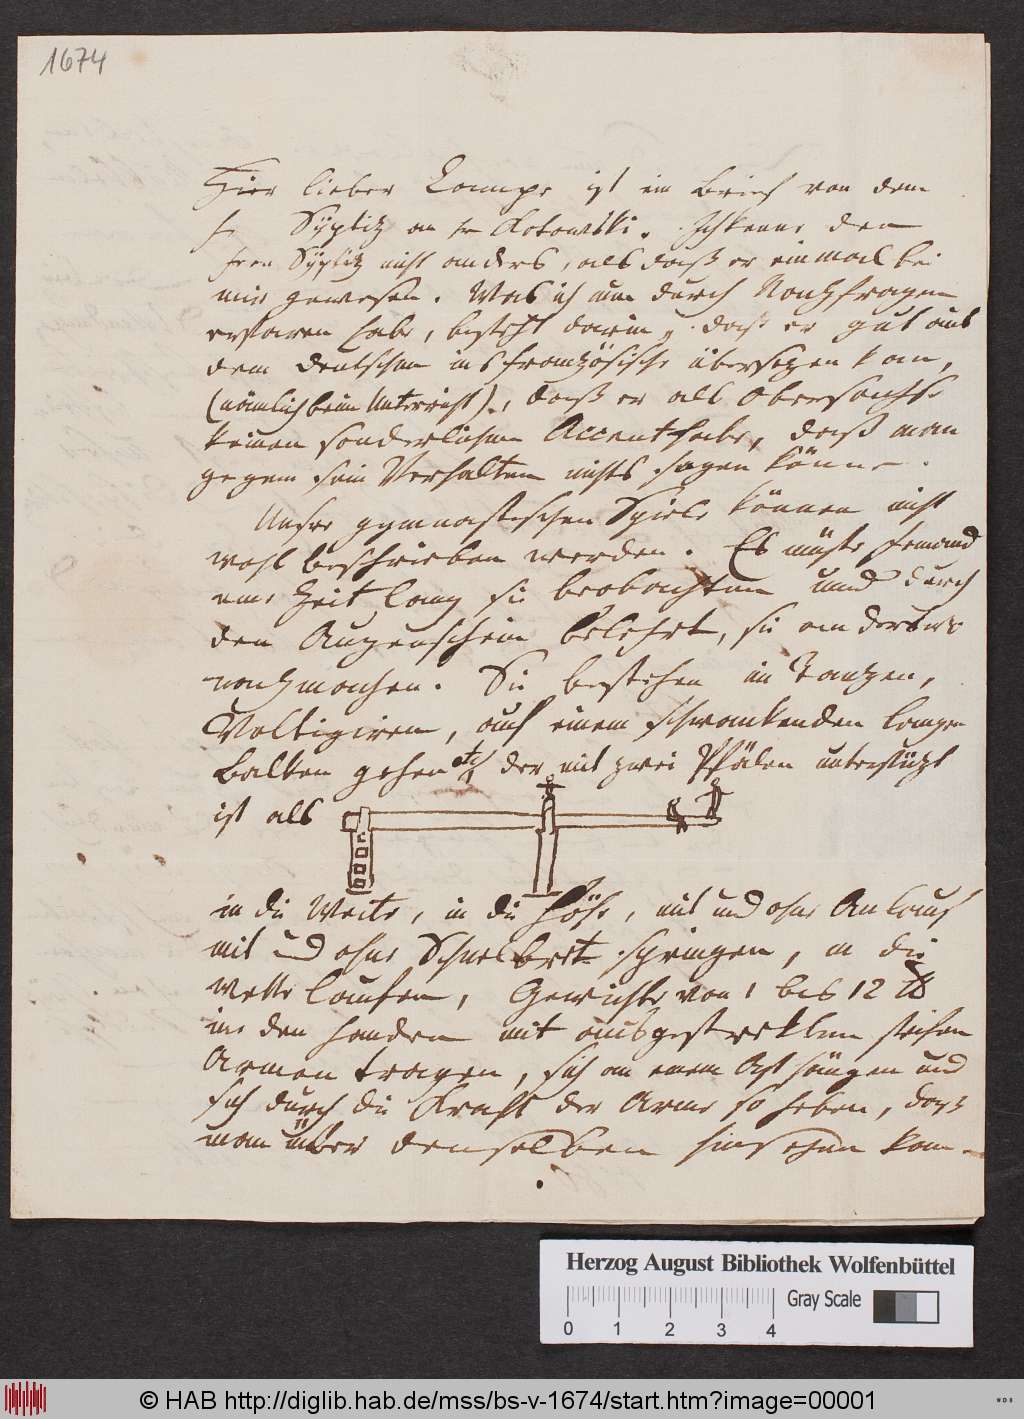 1674
Hier lieber Campe ist ein Brief von dem
H Syplitz an Hr Kotowski. Ich kenne den
Hern Syplitz nicht anders, als daß er einmal bei
mir gewesen. Was ich nun durch Nachfragen
erfaren habe, besteht darin, daß er gut aus
dem Deutschen ins französische übersezen kan,
(nämlich beim Unterricht), daß er als Obersachse
keinen sonderlichen Accent habe, daß man
gegen sein Verhalten nichts sagen könne.
Unsre gymnastischen Spiele können nicht
wohl beschrieben werden. Es müste jemand
eine Zeit lang sie beobachten und durch
den Augenschein belehrt, sie anderswo
nachmachen. Sie bestehen im Tanzen,
Voltigiren, auf einem schwankenden langen
Balken gehen etc der mit zwei Pfälen unterstüzt
ist als
in die Weite, in die Höhe, mit und ohne Anlauf
mit und ohne Schnelbret springen, in die
Wette laufen, Gewichte von 1 bis 12 ℔
in den Handen mit ausgestrekten steifen
Armen tragen, sich an einem Ast hängen und
sich durch die Kraft der Arme so heben, daß
man über denselben hinsehen kan.
Herzog August Bibliothek Wolfenbüttel
Gray Scale
0 1 2 3 4
© HAB http://diglib.hab.de/mss/bs-v-1674/start.htm?image=00001